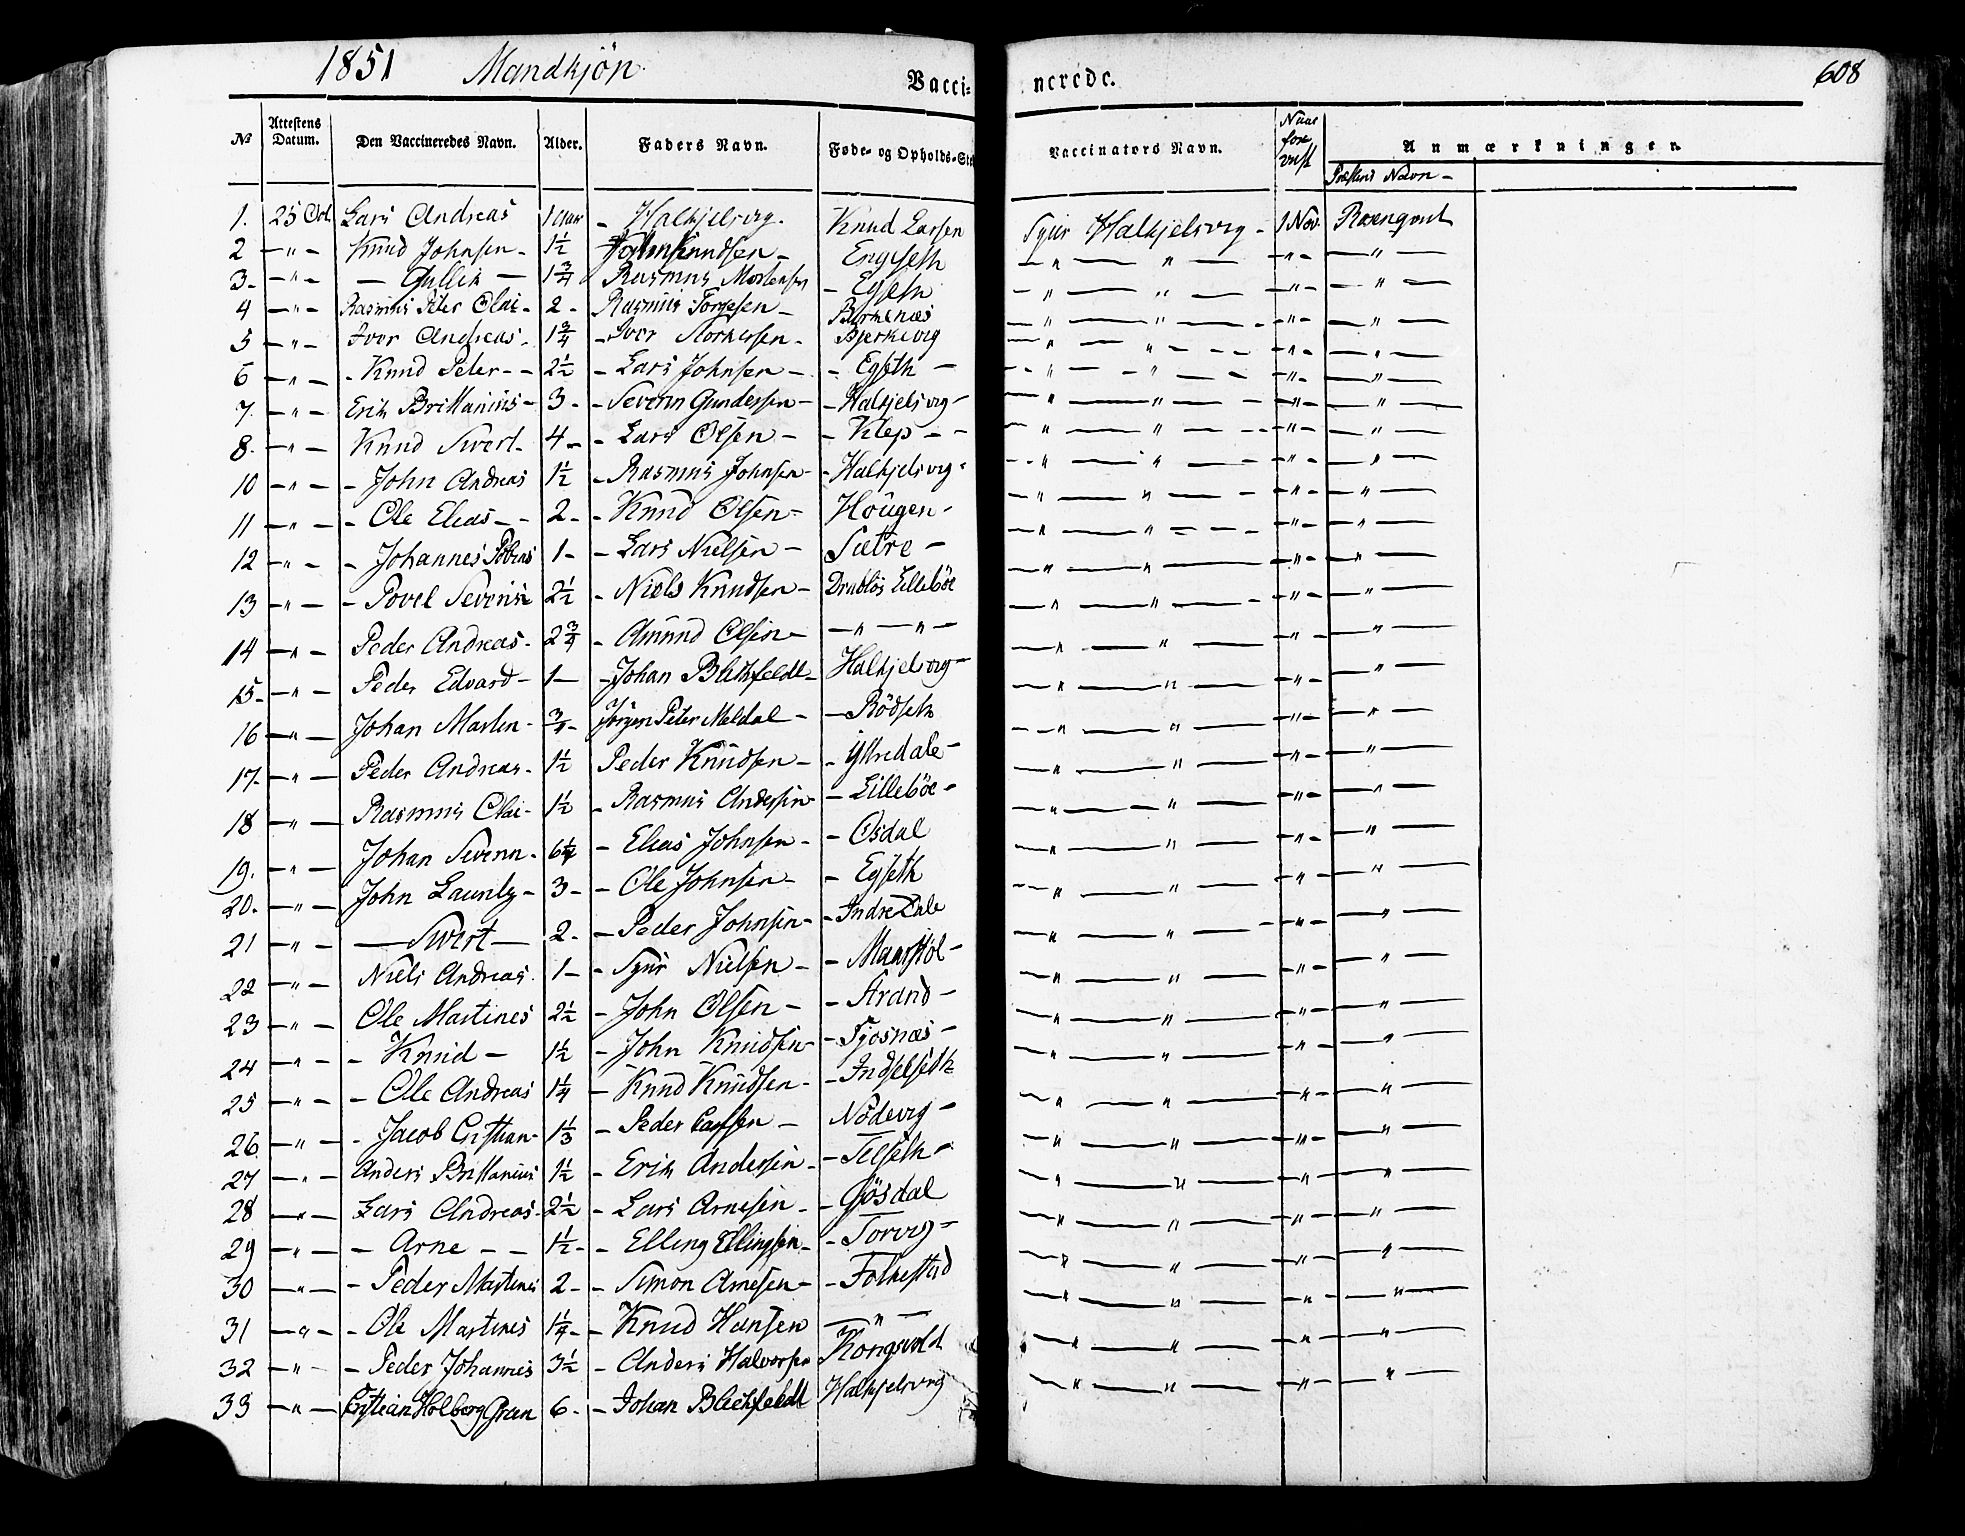 1851 Mandkjön Vacci- nerede. 608
No Attestens Datum. Den Vaccineredes Navn. Alder. Faders Navn. Føde- og Opholds-Ste Vaccinators Navn. Naar fore vüst Anmærkninger.
Præstens Navn -
1. 25 Oct. Lars Andreas 1 aar - Halkjelsvig. Knud Larsen Sÿur Halkjelsvig - 1 Nov.
2 -"- Knud Johnsen - 1½ Knudsen - Engeseth -"-"- -"- -"-
3 -"- - Gullik - 1¾ Rasmus Mortensen - Egseth -"-"- -"- -"-
4 -"- Rasmus Peter Olai - 2 - Rasmus Torgesen - Birkenæs -"-"- -"- -"-
5 -"- Iver Andreas - 1¾ - Iver - Bjerkevig -"-"- -"- -"-
6 -"- - Knud Peter - - 2½ - Lars Johnsen - - Egseth - -"-"- -"- -"-
7. -"- Erik Brittanius - 3 - - Severin Gundersen - - Halkjelsvig - -"-"- -"- -"-
8. -"- Knud Sivert - 4 - - Lars Olsen - - Klep - - -"-"- -"- -"-
10 -"- - John Andreas 1½ - Rasmus Johnsen - - Halkjelsvig - -"-"- -"- -"-
11 -"- - Ole Elias - - 2 - - Knud Olsen - Hougen - -"-"- -"- -"-
12 -"- - Johannes Tobias 1 - - Lars Nielsen - Sætre - -"-"- -"- -"-
13 -"- - Povel Severin 2½ - Niels Knudsen - Drabløs Lillebøe -"-"- -"- -"-
14 -"- Peder Andreas - 2¾ - Amund Olsen - -"-"- -"-"- -"- -"-
15 -"- Peder Edvard - 1 - - Johan Blichfeldt - Halkjelsvig - -"-"- -"- -"-
16 -"- Johan Marten - ¾ - Jörgen Peter Meldal - - Bödseth -"-"- -"- -"-
17. -"- Peder Andreas - 1½ Peder Knudsen - - Yttredale - -"-"- -"- -"-
18 -"- Rasmus Olai - 1½ - Rasmus Andersen - - Lillebøe - -"-"- -"- -"-
19. -"- Johan Severin - 6¼ - Elias Johnsen - - Osdal -"-"- -"- -"-
20. -"- John - 3 - - Ole Johnsen - - Egseth -"-"- -"- -"-
21 -"- - Sivert - 2 - - Peder Johnsen - - Indre Dale -"-"- -"- -"-
22 -"- Niels Andreas 1 - - Syur Nielsen - - -"-"- -"- -"-
23 -"- Ole Martines 2½ - John Olsen - - Strand - -"-"- -"- -"-
24 -"- - Knud - 1½ - John Knudsen - - -"-"- -"- -"-
25 -"- - Ole Andreas 1¼ - Knud Knudsen - - Indselseth -"-"- -"- -"-
26 -"- - Jacob Cristian - 1⅓ - Peder Larsen - Nödevig - -"-"- -"- -"-
27 -"- Anders Brittanius 1½ - Erik Andersen - - Telseth - -"-"- -"- -"-
28 -"- Lars Andreas - 2½ - Lars Arnesen - - Gösdal -"-"- -"- -"-
29 -"- - Arne - - 1½ - - Elling Ellingsen - - Torvig - -"-"- -"- -"-
30 -"- - Peder Martines 2 - - Simon Arnesen - - Folkestad -"-"- -"- -"-
31 -"- - Ole Martines 1¼ - - Knud Hansen -"- -"-"- -"- -"-
32 -"- - Peder Johannes 3½ - Anders Halvorsen Kongsvold -"-"- -"- -"-
33 -"- Cristian Holberg Gran 6 - - Johan Blichfeldt Halkjelsvig -"-"- -"- -"-